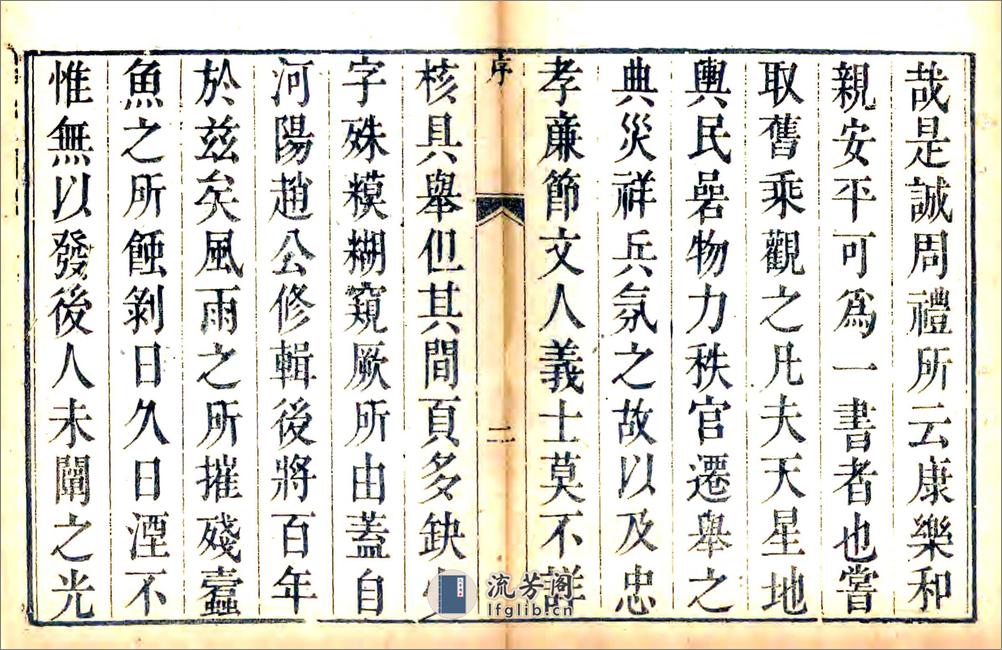 哉是誠周禮所云康樂和
親安平可爲一書者也嘗
取舊乘觀之凡夫天星地
輿民嵒物力秩官遷舉之
典災祥兵氛之故以及忠
孝亷節文人義士莫不詳
序
二
核具舉但其間頁多缺
字殊糢糊窺厥所由蓋自
河陽趙公修輯後將百年
於兹矣風雨之所摧殘蠹
魚之所蝕剝日久日湮不
惟無以發後人未闡之光
流芳阁
lfglib.cn